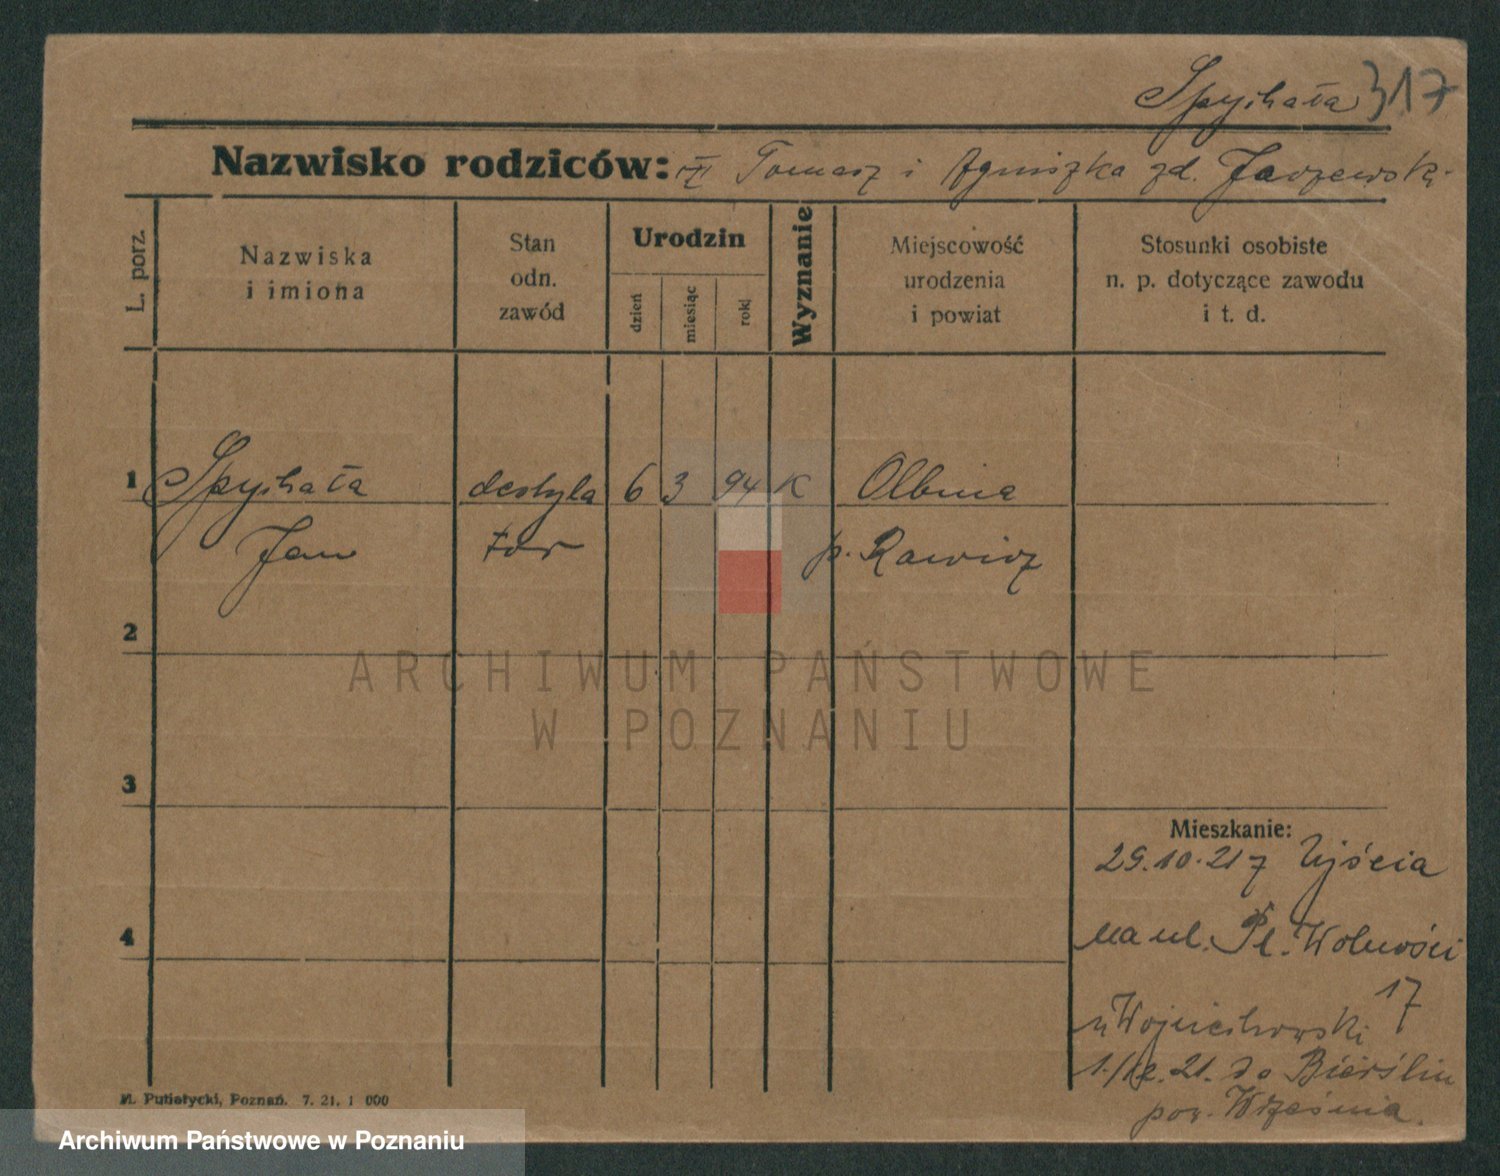 Spychała 317
Nazwisko rodziców: Tomasz i Agniszka zd. Jarzewski
L. porz.
Nazwiska
i imiona
Stan
odn.
zawód
Urodzin
dzień
miesiąc
rok
Wyznanie
Miejscowość
urodzenia
i powiat
Stosunki osobiste
n. p. dotyczące zawodu
i t. d.
1 Spychała destyla 6 3 94 K Olbina
Jan tor p. Rawicz
2
ARCHIWUM PAŃSTWOWE
W POZNANIU
3
Mieszkanie:
29.10.21 z Ujścia
4
na ul. Pl. Wolności
17
u Wojciechowski
1./12. 21. do Bierślin
pow. Września.
M. Putiatycki, Poznań. 7. 21. 1 000
Archiwum Państwowe w Poznaniu